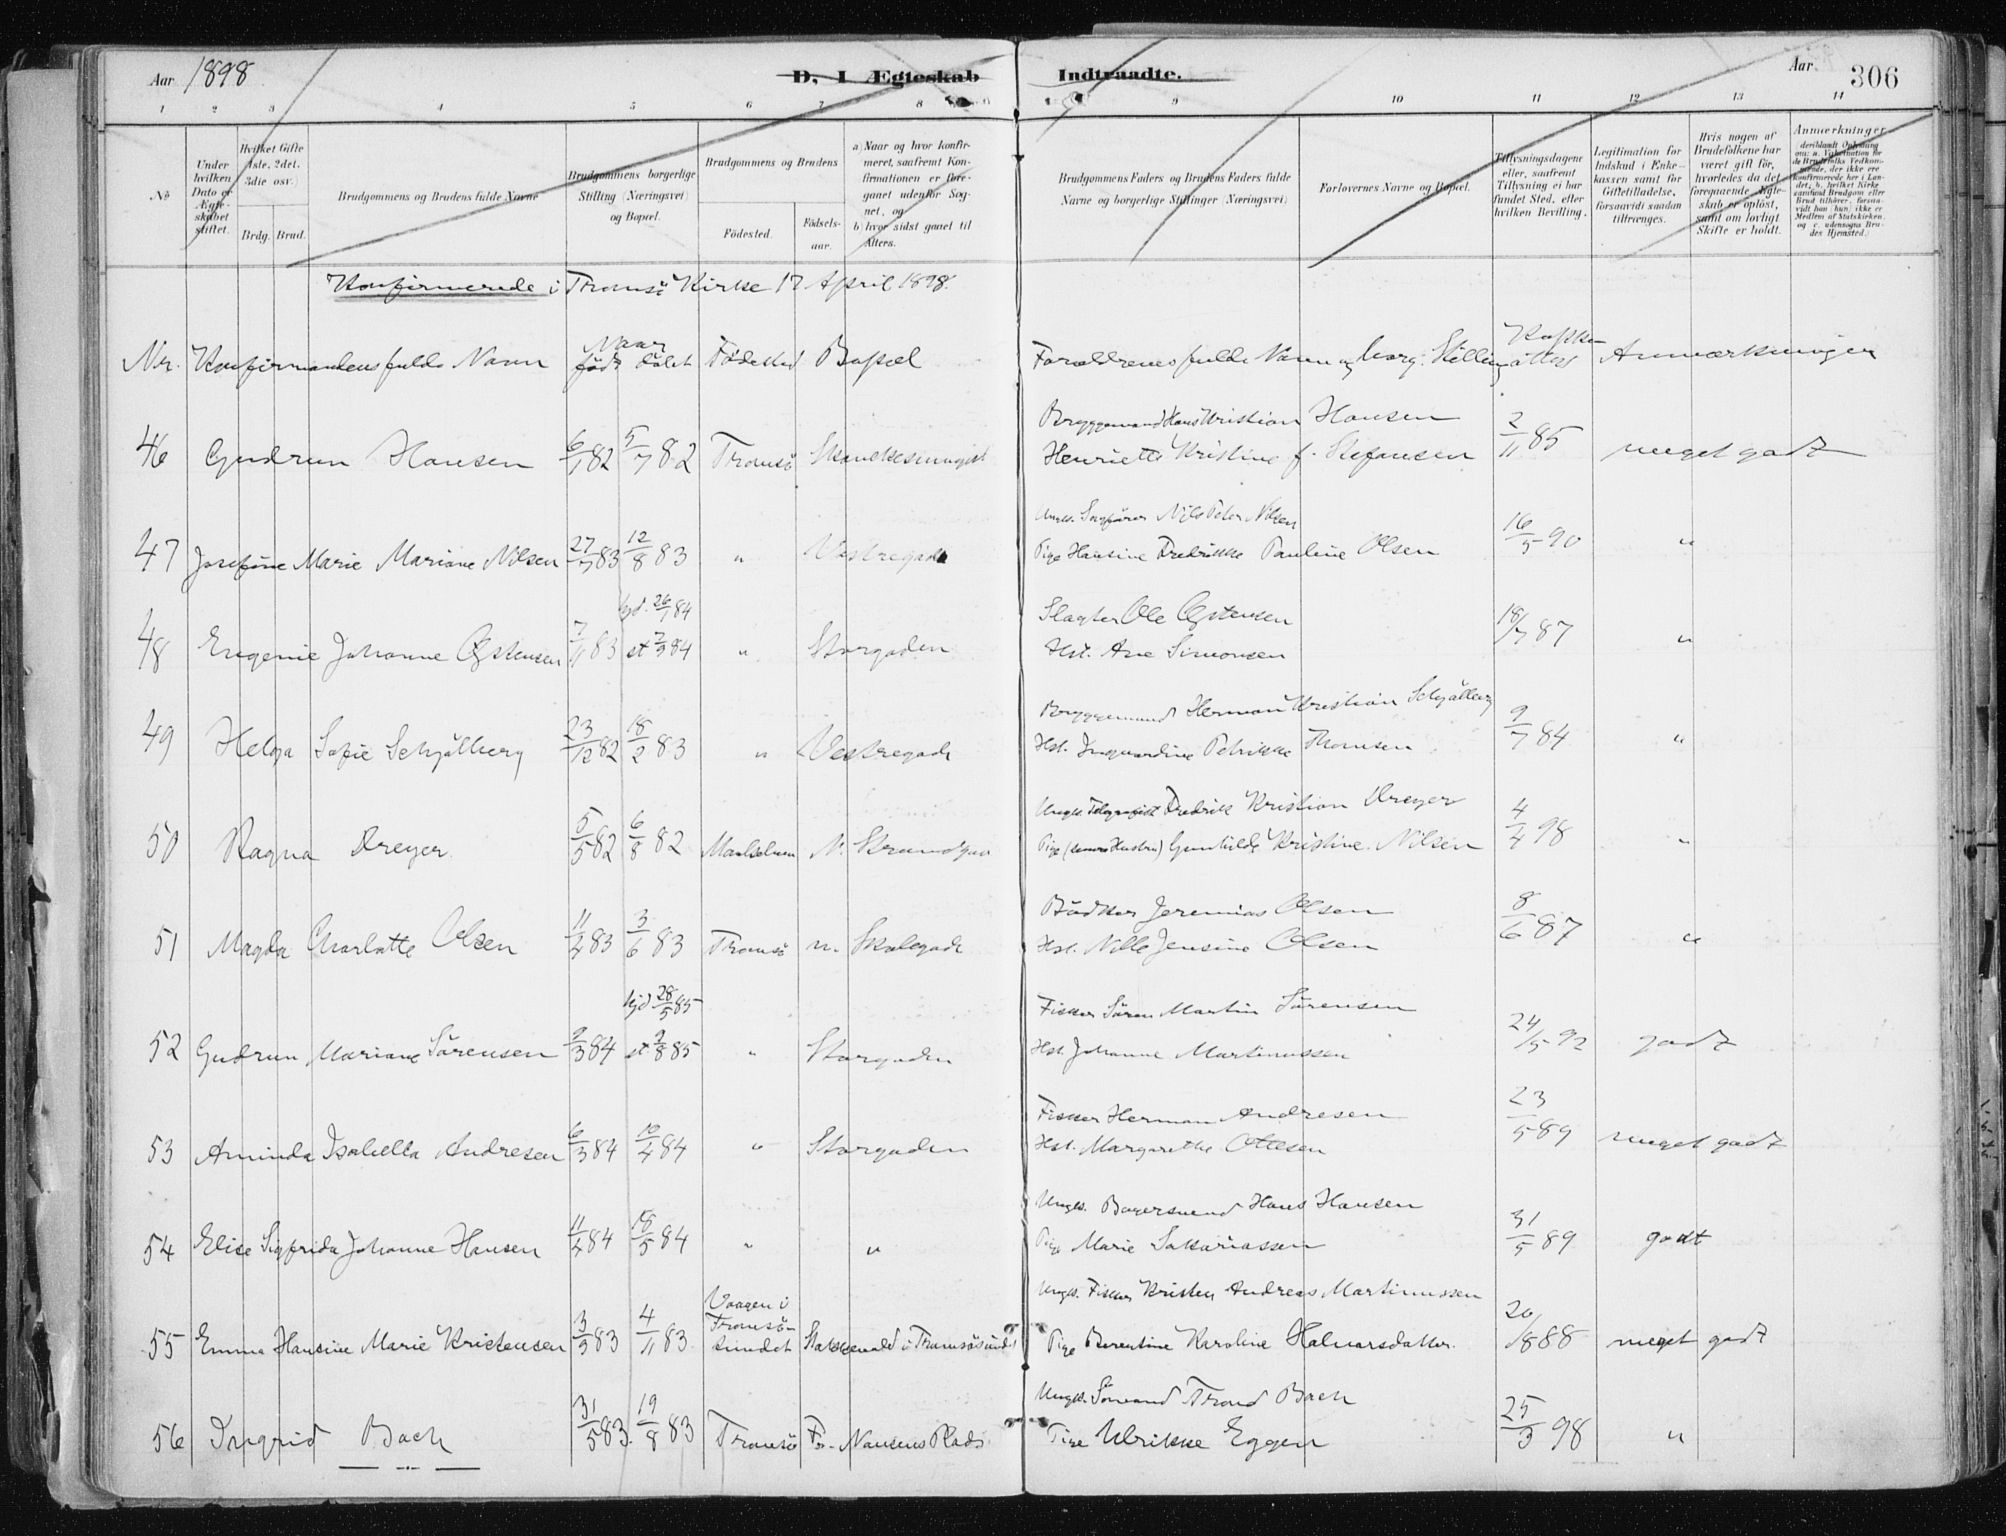 Aar 1898
D. I Ægteskab Indtraadte.
Aar
306
1 2 3 4 5 6 7 8 9 10 11 12 13 14
No
Under hvilken Dato er Ægteskabet stiftet.
Hvilket Gifte (1ste, 2det, 3die osv.)
Brdg. Brud.
Brudgommens og Brudens fulde Navne
Brudgommens borgerlige Stilling (Næringsvei) og Bopæl.
Brudgommens og Brudens
Fødested.
Fødsels-aar.
a) Naar og hvor konfirmeret, saafremt Konfirmationen er foregaaet udenfor Sognet, og
b) hvor sidst gaaet til Alters.
Brudgommens Faders og Brudens Faders fulde Navne og borgerlige Stillinger (Næringsvei)
Forlovernes Navne og Bopæl.
Tillysningsdagene eller, saafremt Tillysning ei har fundet Sted, efter hvilken Bevilling.
Legitimation for Indskud i Enkekassen samt for Giftetilladelse, forsaavidt saadan tiltrænges.
Hvis nogen af Brudefolkene har været gift før, hvorledes da det foregaaende Ægteskab er opløst, samt om lovligt Skifte er holdt.
Anmærkninger
Konfirmerede i Tromsö Kirke 17 April 1898.
Nr. Konfirmandens fulde Navn Naar födt döbt Födested Bopæl Forældrenes fulde Navn og borg. Stilling Anmærkninger
46 Gudrun Hansen 6/1 82 5/7 82 Tromsö Bryggemand Hans Kristian Hansen
Henriette Kristine f. Stefansen 2/11 85 meget godt
47 Josefine Marie Mariane Nilsen 27/7 83 12/8 83 " Vestregade Ungk. Nils Peter Nilsen
Pige Hansine Fredrikke Pauline Olsen 16/5 90 "
48 Eugenie Johanne Östensen 7/11 83 hjd. 26/1 84 st 2/3 84 " Storgaden Slagter Ole Östensen
Hst. Ane Simonsen 18/7 87 "
49 Helga Sofie Schjölberg 23/12 82 18/2 83 " Vestregade Bryggemand Herman Kristian Schjölberg
Hst. Petrikke Thomsen 9/7 84 "
50 Ragna Dreyer 5/5 82 6/8 82 N. Strandgad Ungk. Telegrafist Fredrik Kristian Dreyer
Pige (senere Hustru) Gunhilde Kristine Nilsen 4/4 98 "
51 Magda Charlotte Olsen 11/4 83 3/6 83 Tromsö n. Skolegade Bödker Jeremias Olsen
Hst. Nille Jensine Olsen 8/6 87 "
52 Gudrun Mariane Sörensen 2/3 84 hjd 28/5 85 st. 2/8 85 " Storgaden Fisker Sören Martin Sörensen
Hst. Johanne Martinussen 24/5 92 godt
53 Aminda Isabella Andresen 6/3 84 10/4 84 " Storgaden Fisker Herman Andresen
Hst. Margarethe Ottesen 23/5 89 meget godt
54 Elise Sigfrida Johanne Hansen 11/4 84 18/5 84 " " Ungk. Bagersvend Hans Hansen
Pige Marie Sakariassen 31/5 89 godt
55 Emma Hansine Marie Kristensen 3/5 83 4/11 83 Vaagen i Tromsö-sundet i Tromsösundet Ungk. Fisker Kristen Andreas Martinussen
Pige Berentine Karoline Halvarsdatter. 20/8 88 meget godt
56 Ingrid Bach 31/5 83. 19/8 83 Tromsö Fr. Nansens Plads Ungk. Sömand Trond Bach
Pige Ulrikke Eggen 25/3 98 "